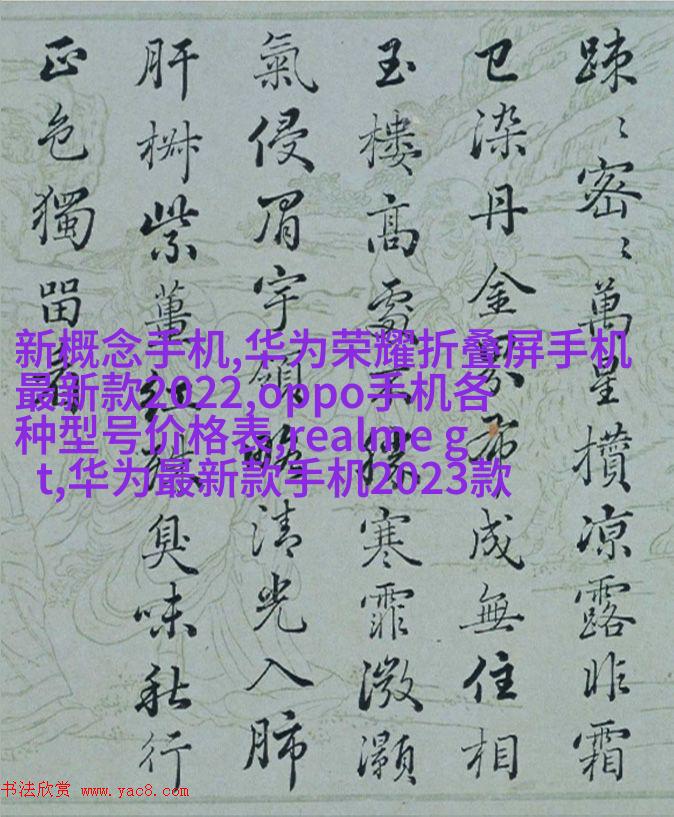 踈〻密〻萬星攢凉露昨霜
已染丹金界布成無住相
玉樓高處不勝寒霏溦灝
氣侵眉宇領略清光入肺
肝椒紫薑紅臭味秋行
正色獨留看
新概念手机,华为荣耀折叠屏手机
最新款2022,oppo手机各
种型号价格表,realme g
t,华为最新款手机2023款
书法欣赏 www.yac8.com